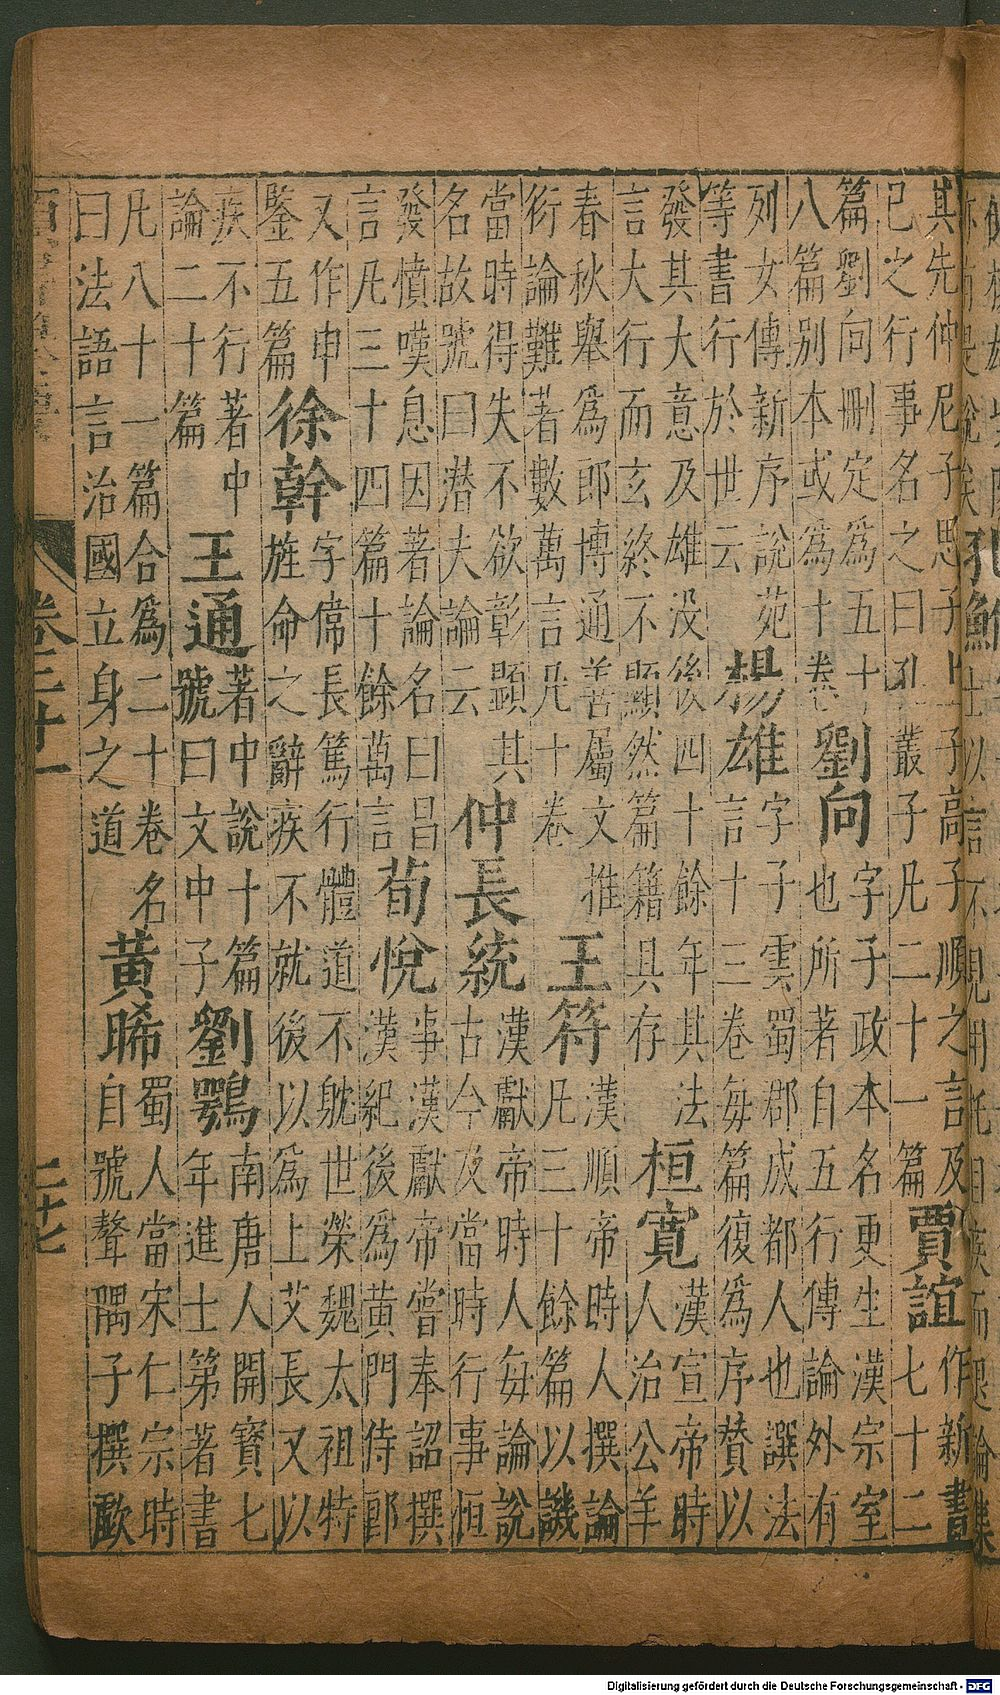 孔鮒士以言不見用託目疾而退論集
其先仲尼子思子上子高子順之言及已之行事名之曰孔叢子凡二十一篇賈誼作新書七十二
篇劉向刪定爲五十八篇别本或爲十卷劉向字子政本名更生漢宗室也所著自五行傳論外有
列女傳新序說苑等書行於世云楊雄字子雲蜀郡成都人也譔法言十三卷每篇復爲序贊以
發其大意及雄没後四十餘年其法言大行而玄終不顯然篇籍具存桓寬漢宣帝時人治公羊
春秋舉爲郎博通善屬文推衍論難著數萬言凡十卷王符漢順帝時人撰論凡三十餘篇以譏
當時得失不欲彰顯其名故號曰潛夫論云仲長統漢獻帝時人每論說古今及當時行事恒
發憤嘆息因著論名曰昌言凡三十四篇十餘萬言荀悅事漢獻帝嘗奉詔撰漢紀後爲黄門侍郎
又作申鑒五篇徐幹字偉長篤行體道不躭世榮魏太祖特旌命之辭疾不就後以爲上艾長又以
疾不行著中論二十篇王通著中說十篇號曰文中子劉鶚南唐人開寶七年進士第著書
凡八十一篇合爲二十卷名曰法語言治國立身之道黄晞蜀人當宋仁宗時自號聱隅子撰歐
卷二十一 二十七
Digitalisierung gefördert durch die Deutsche Forschungsgemeinschaft - DFG